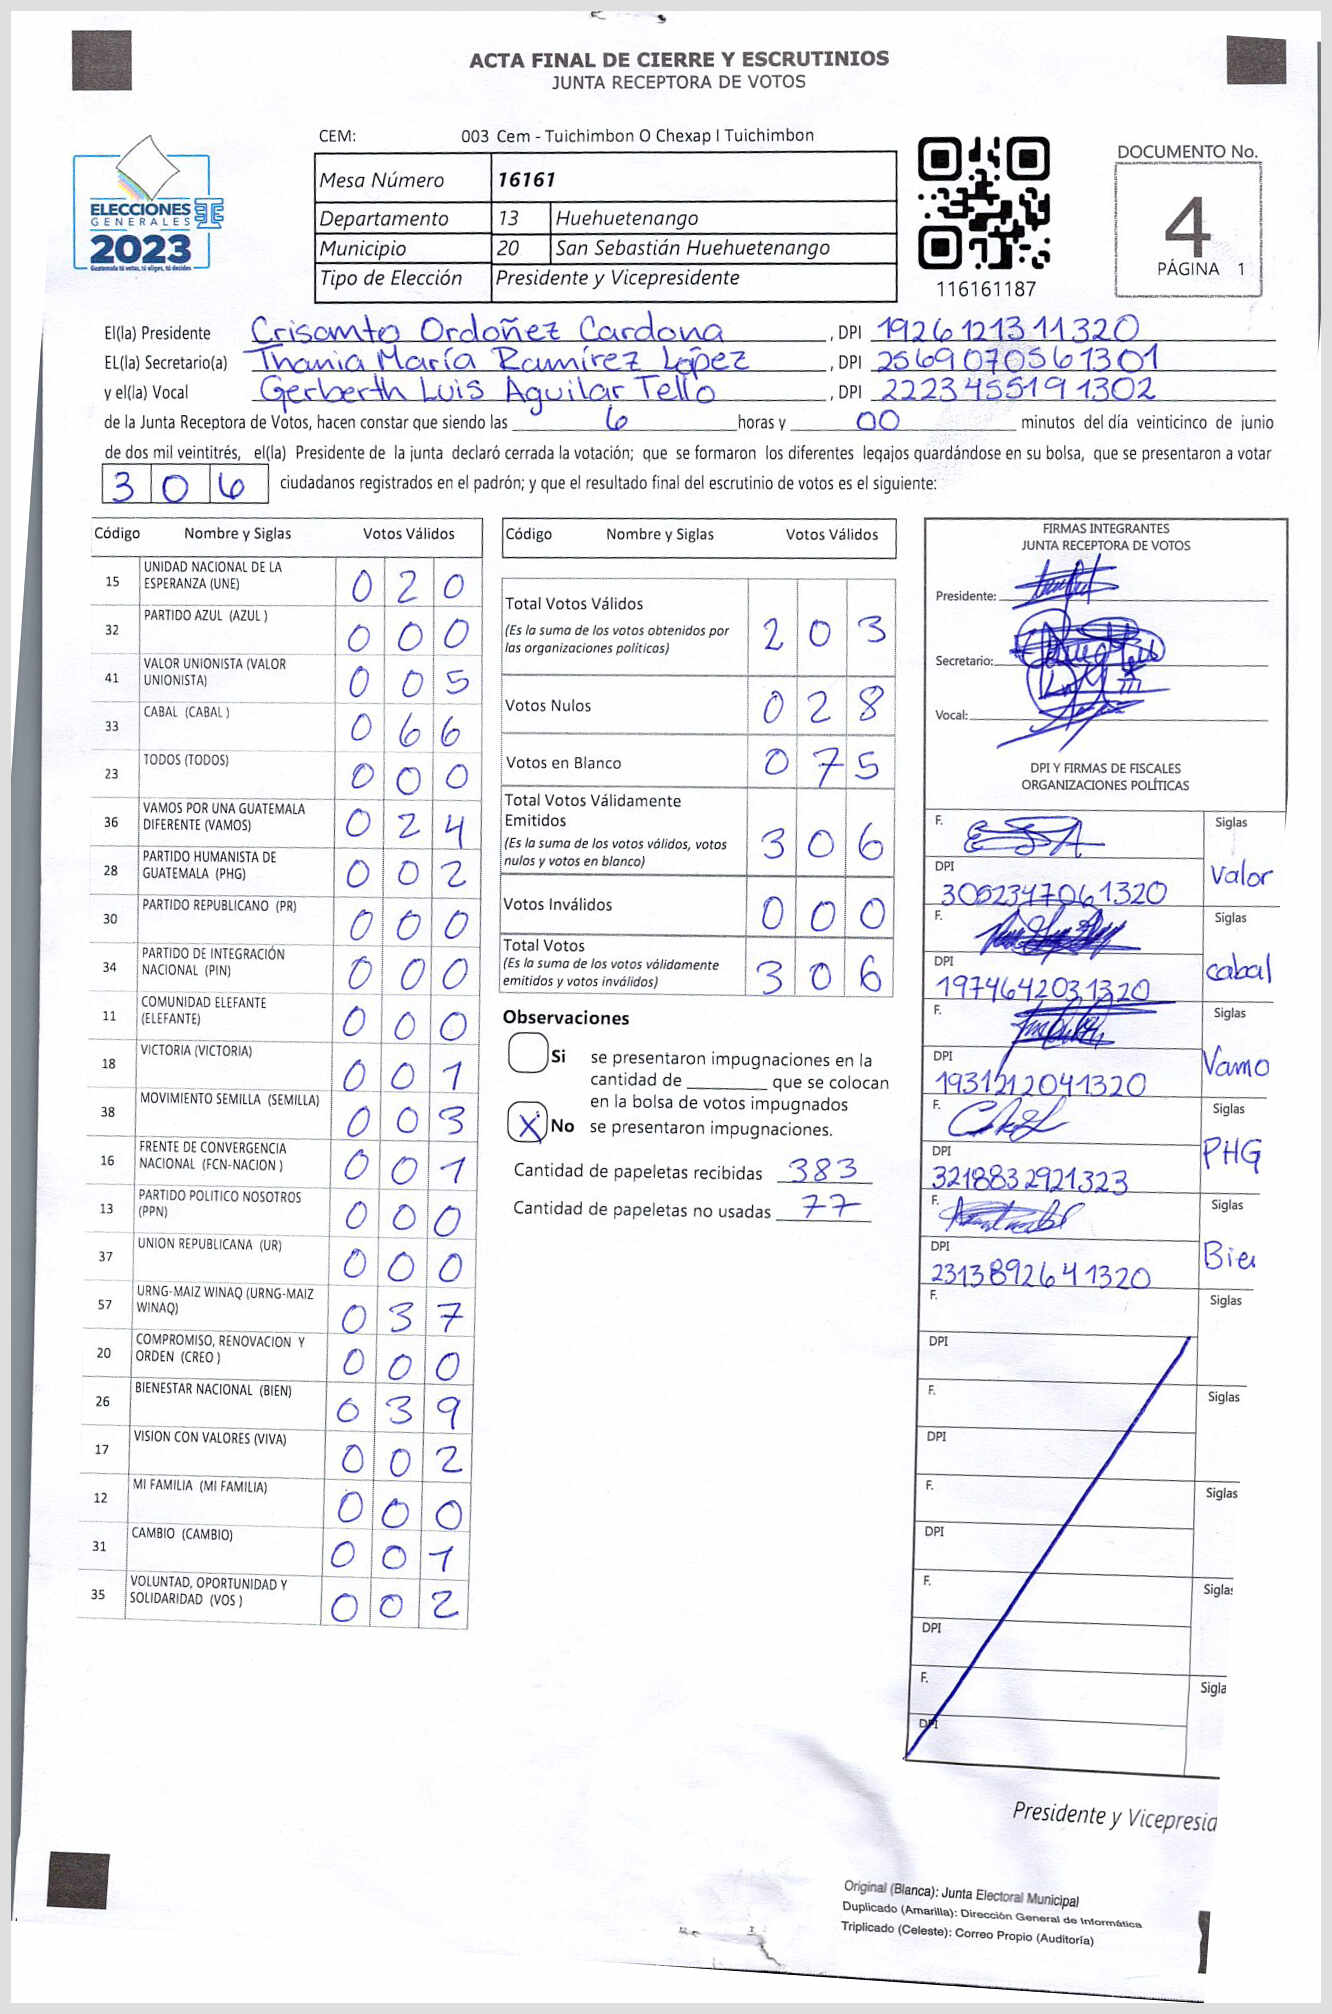 ACTA FINAL DE CIERRE Y ESCRUTINIOS
JUNTA RECEPTORA DE VOTOS
CEM: 003 Cem - Tuichimbon O Chexap I Tuichimbon
ELECCIONES
GENERALES
2023
Guatemala tú votas, tú eliges, tú decides
Mesa Número 16161
Departamento 13 Huehuetenango
Municipio 20 San Sebastián Huehuetenango
Tipo de Elección Presidente y Vicepresidente
116161187
DOCUMENTO No.
4
PÁGINA 1
El(la) Presidente Crisomto Ordoñez Cardona, DPI 1926121311320
EL(la) Secretario(a) Thania María Ramírez López, DPI 2569070561301
y el(la) Vocal Gerberth Luis Aguilar Tello, DPI 2223455191302
de la Junta Receptora de Votos, hacen constar que siendo las 6 horas y 00 minutos del día veinticinco de junio
de dos mil veintitrés, el(la) Presidente de la junta declaró cerrada la votación; que se formaron los diferentes legajos guardándose en su bolsa, que se presentaron a votar
306 ciudadanos registrados en el padrón; y que el resultado final del escrutinio de votos es el siguiente:
Código Nombre y Siglas Votos Válidos
15 UNIDAD NACIONAL DE LA ESPERANZA (UNE) 0 2 0
32 PARTIDO AZUL (AZUL ) 0 0 0
41 VALOR UNIONISTA (VALOR UNIONISTA) 0 0 5
33 CABAL (CABAL ) 0 6 6
23 TODOS (TODOS) 0 0 0
36 VAMOS POR UNA GUATEMALA DIFERENTE (VAMOS) 0 2 4
28 PARTIDO HUMANISTA DE GUATEMALA (PHG) 0 0 2
30 PARTIDO REPUBLICANO (PR) 0 0 0
34 PARTIDO DE INTEGRACIÓN NACIONAL (PIN) 0 0 0
11 COMUNIDAD ELEFANTE (ELEFANTE) 0 0 0
18 VICTORIA (VICTORIA) 0 0 1
38 MOVIMIENTO SEMILLA (SEMILLA) 0 0 3
16 FRENTE DE CONVERGENCIA NACIONAL (FCN-NACION ) 0 0 1
13 PARTIDO POLITICO NOSOTROS (PPN) 0 0 0
37 UNION REPUBLICANA (UR) 0 0 0
57 URNG-MAIZ WINAQ (URNG-MAIZ WINAQ) 0 3 7
20 COMPROMISO, RENOVACION Y ORDEN (CREO ) 0 0 0
26 BIENESTAR NACIONAL (BIEN) 0 3 9
17 VISION CON VALORES (VIVA) 0 0 2
12 MI FAMILIA (MI FAMILIA) 0 0 0
31 CAMBIO (CAMBIO) 0 0 1
35 VOLUNTAD, OPORTUNIDAD Y SOLIDARIDAD (VOS ) 0 0 2
Código Nombre y Siglas Votos Válidos
Total Votos Válidos 2 0 3
(Es la suma de los votos obtenidos por
las organizaciones políticas)
Votos Nulos 0 2 8
Votos en Blanco 0 7 5
Total Votos Válidamente
Emitidos 3 0 6
(Es la suma de los votos válidos, votos
nulos y votos en blanco)
Votos Inválidos 0 0 0
Total Votos 3 0 6
(Es la suma de los votos válidamente
emitidos y votos inválidos)
Observaciones
Si se presentaron impugnaciones en la
cantidad de ________ que se colocan
en la bolsa de votos impugnados
X No se presentaron impugnaciones.
Cantidad de papeletas recibidas 383
Cantidad de papeletas no usadas 77
FIRMAS INTEGRANTES
JUNTA RECEPTORA DE VOTOS
Presidente:
Secretario:
Vocal:
DPI Y FIRMAS DE FISCALES
ORGANIZACIONES POLÍTICAS
F. Siglas
DPI Valor
3062347061320
F. Siglas
DPI cabal
1974642031320
F. Siglas
DPI Vamo
1931212041320
F. Siglas
DPI PHG
3218832921323
F. Siglas
DPI Bien
2313892641320
F. Siglas
DPI
F. Siglas
DPI
F. Siglas
DPI
F. Siglas
DPI
F. Sigla
DPI
Presidente y Vicepresid
Original (Blanca): Junta Electoral Municipal
Duplicado (Amarilla): Dirección General de Informática
Triplicado (Celeste): Correo Propio (Auditoría)